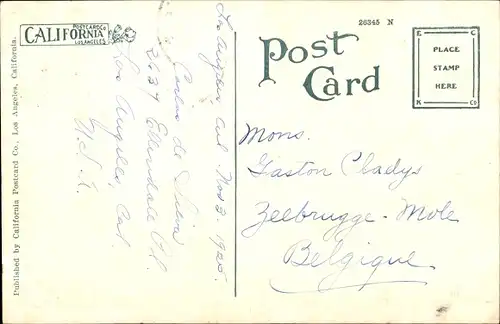 CALIFORNIA
POSTCARD CO.
LOS ANGELES
Published by California Postcard Co., Los Angeles, California.
Los Angeles Cal Nov 3, 1925.
Carlos de Silva
2137 Ellendale Pl.
Los Angeles, Cal
U.S.A.
26345 N
Post
Card
E C
PLACE
STAMP
HERE
K Co
Mons.
Gaston Cladys
Zeebrugge-Mole
Belgique